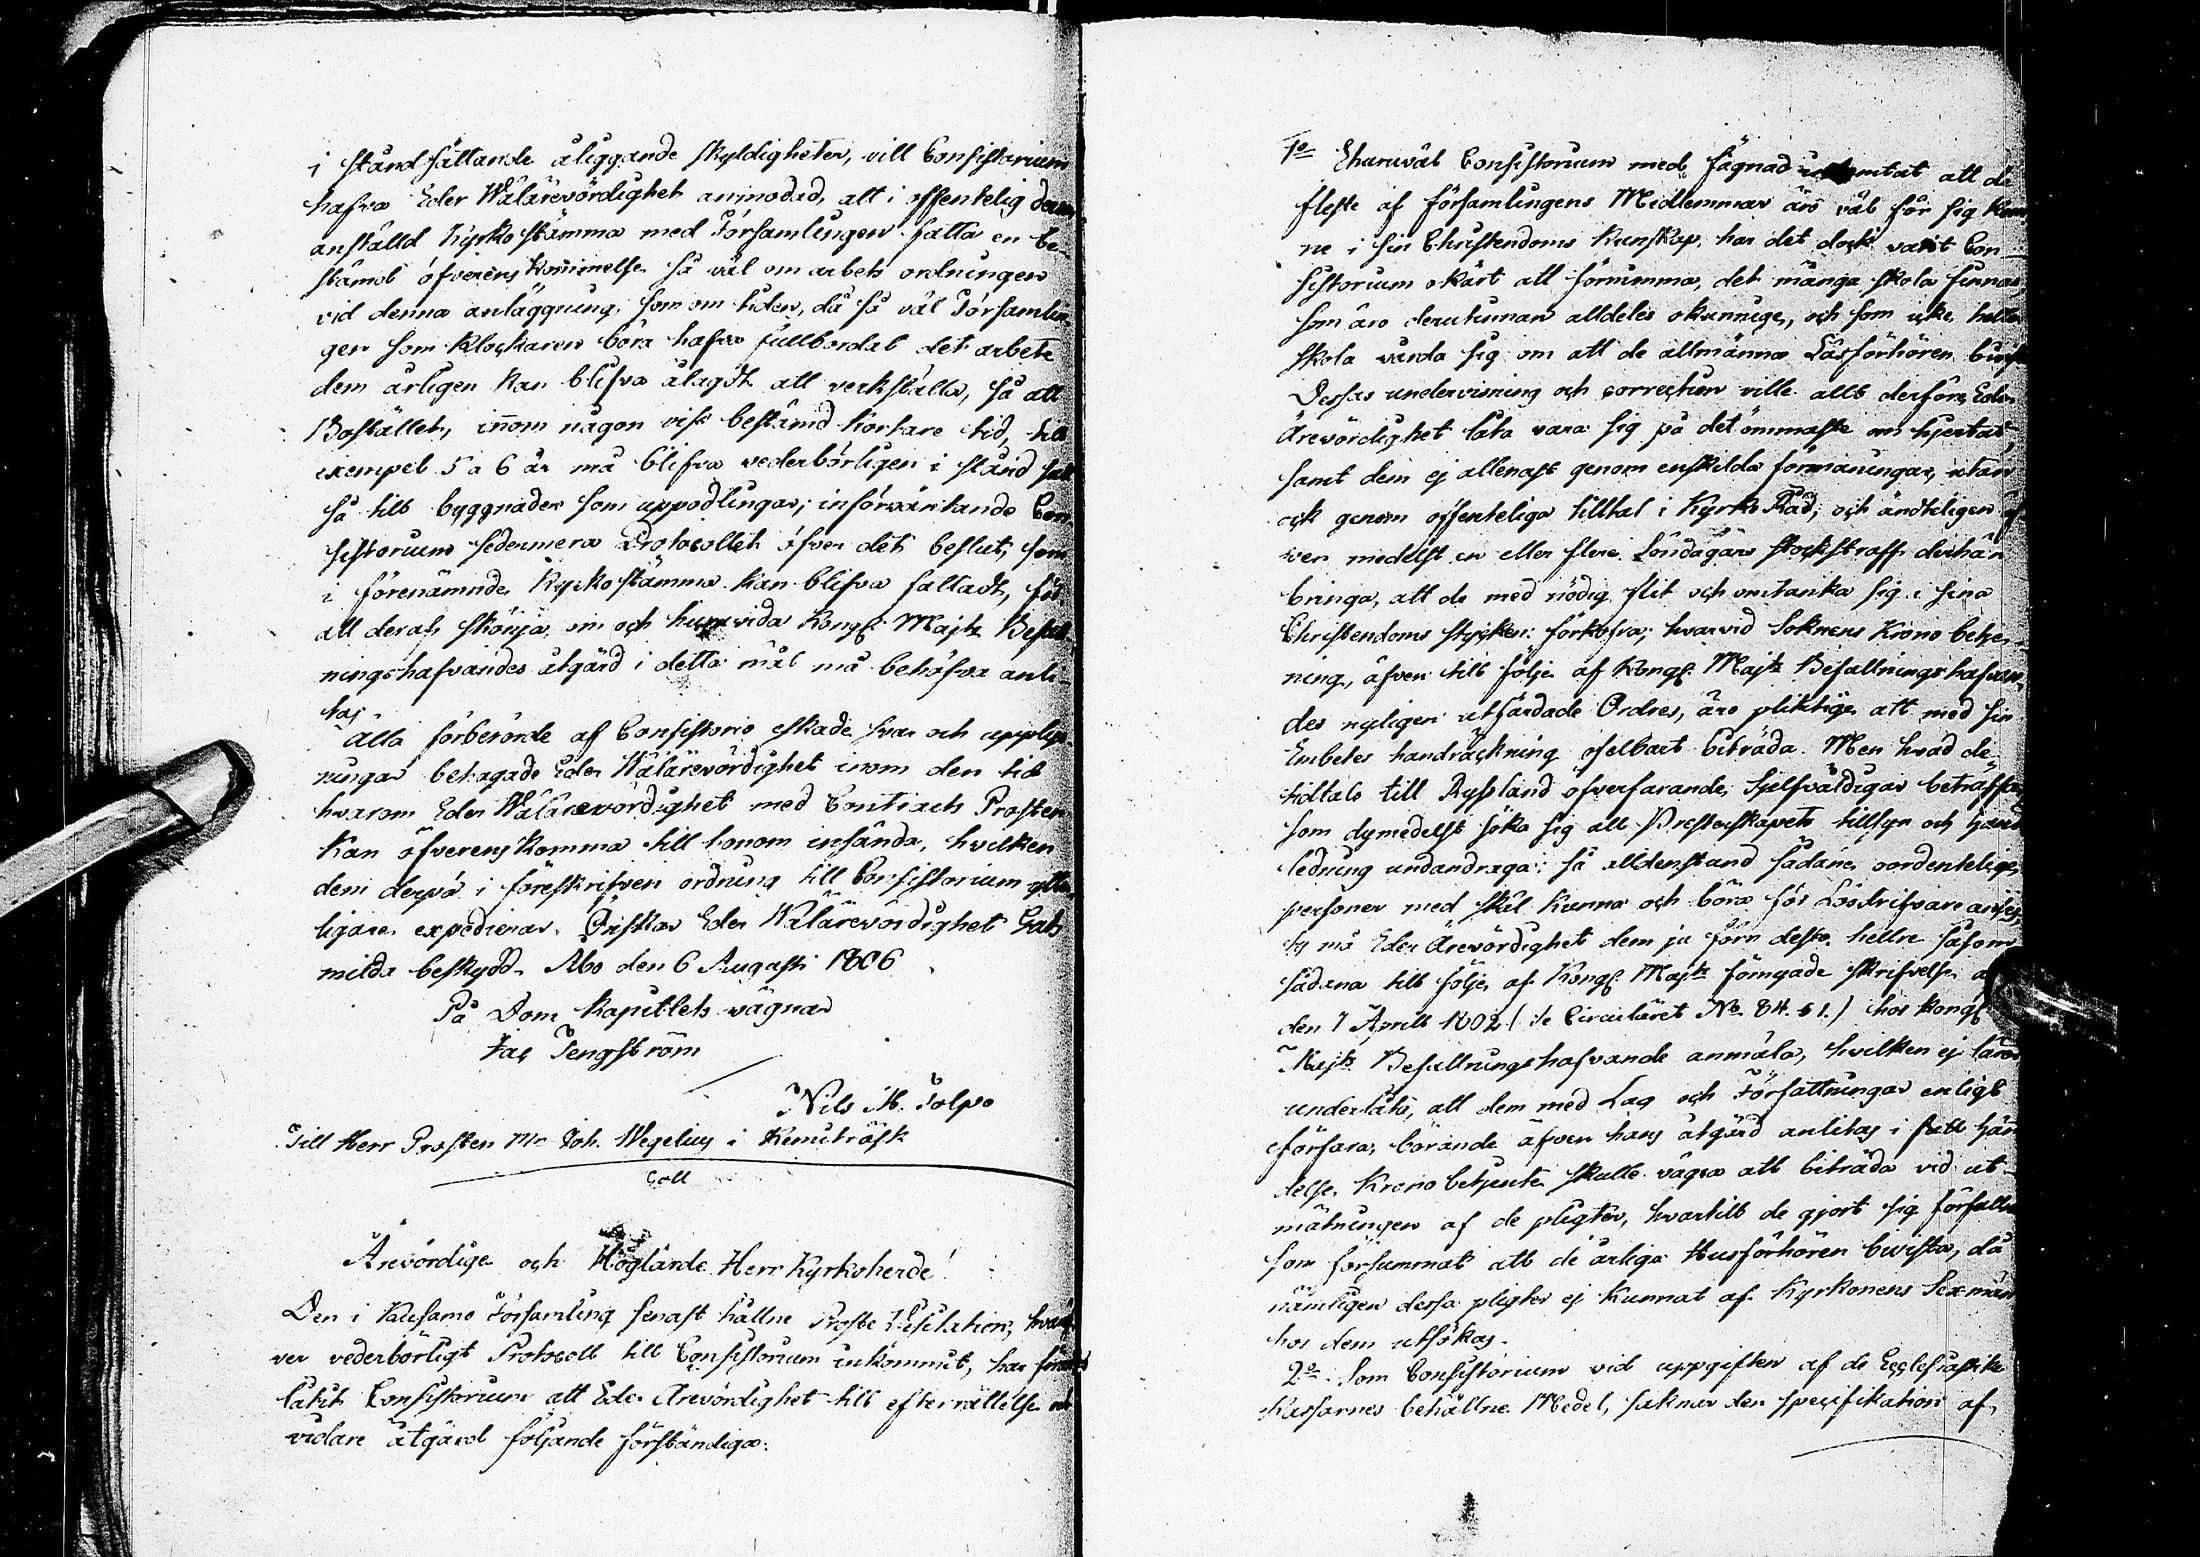 i ständsättande åliggande skyldigheter, vill Consistorium
hafva Eder Wälärevördighet anmodad, att i offentelig
anställd Kyrkostämma med Församlingen fatta en be-
stämd öfverenskommelse så väl om arbets ordningen
vid denna anläggning, som om tiden, då så väl Församlin-
gen som Klockaren böra hafva fullbordat det arbete
dem årligen kan blifva ålagdt att verkställa, så att
Boställets, innom någon viss bestämd kortare tid, till
exempel 5 a 6 år må blifva vederbörligen i stånd satt
så till byggnader som uppodlingar; inforväntande Con-
sistorium sedermera Protocollet öfver det beslut, som
i förenämnde Kyrkostämma kan blifva fattadt, för
att deraf skönja, om och huruvida Kongl. Majts Befall-
ningshafvandes åtgärd i detta mål må behöfva anli-
tas
Alla förberörde af Consistorio äskade svar och upplys-
ningar behagade Eder Wälärevördighet inom den tid
hvarom Eder Wälärevördighet med Contracts Prosten
kan öfverenskomma till honom insända, hvilken
dem derpå i föreskrifven ordning till Consistorium ytter-
ligare expedierar. Önskar Eder Wälärevördighet Guds
milda beskydd. Åbo den 6 Augusti 1806.
På Dom Kapitlets vägnar
Jac Tengström
Nils M. Tolpo
Till Herr Prosten Mr Joh. Wegelius i Kemiträsk
Coll
Ärevördige och Höglärde Herr Kyrkoherde!
Den i Kuusamo Församling senast hållne Proste Visitation, hvaröf-
ver vederbörligt Protocoll till Consistorium inkommit, har
låtit Consistorium att Eder Ärevördighet till efterrättelse och
vidare åtgärd följande förständiga:
1o Ehuruväl Consistorium med fägnad att de
fleste af församlingens Medlemmar äro väl för sig kom-
ne i sin Christendoms kunskap, har det dock varit Con-
sistorium okärt att förnimma, det många skola finnas,
som äro derutinnan alldeles okunnige, och som icke heller
skola vårda sig om att de allmänna Läsförhören bevista
Dessas undervisning och correction ville allt derföre Eder
Ärevördighet låta vara sig på det ömmaste om hjertat,
samt dem ej allenast genom enskilda förmaningar, utan
ock genom offenteliga tilltal i Kyrko Råd, och ändteligen äf-
ven medelst en eller flere Söndagars stockstraff derhän
bringa, att de med nödig flit och omtanka sig i sina
Christendoms stycken förkofra; hvarvid Soknens Krono betje-
ning, äfven till följe af Kongl. Majts Befallningshafvan-
des nyligen utfärdade Ordres, äro pliktige att med sin
Embetes handräckning ofelbart biträda. Men hvad de
tidtals till Ryssland öfverfarande Sjelfväldigar beträffar,
som dymedelst söka sig all Presterskapets tillsyn och hand-
ledning undandraga: så alldenstund sådane oordentelige
personer med skäl kunna och böra för Lösdrifvare anses,
ty må Eder Ärevördighet dem ju förr desto hellre såsom
sådana till följe af Kongl. Majts förnyade skrifvelse af
den 7 Aprill 1802 (se Circulairet No. 84. § 1.) hos Kongl.
Majts Befallningshafvande anmäla, hvilken ej lärer
underlåta, att dem med Lag och Författningar enligt
förfara, börande äfven hans åtgärd anlitas i fall hän-
delse Kronobetjente skulle vägra att biträda vid ut-
mätningen af de pligter, hvartill de gjort sig förfallne
som försummat att de årliga Husförhören bevista, då
nämligen dessa pligter ej kunnat af Kyrkonens Sexmän
hos dem utsökas.
2o Som Consistorium vid uppgiften af de Ecclesiastike
Kassornes behållne Medel, saknar den specifikation af